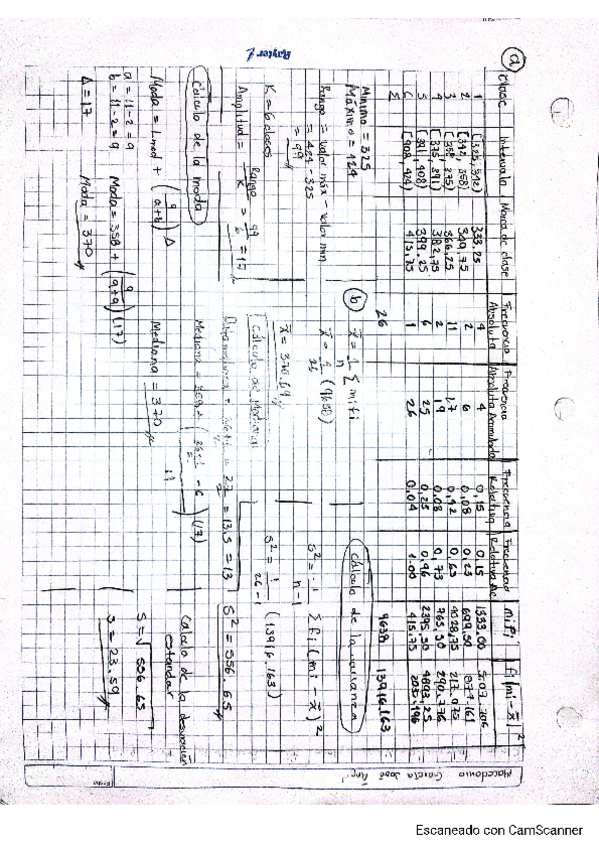 Macedonio García José
Rayter
a)
Clase | Intervalo | Marca de clase | Frecuencia Absoluta | Frecuencia Absoluta Acumulada | Frecuencia Relativa | Frecuencia Relativa Ac. | mifi | fi(mi - x̄)²
1 | [325, 342) | 333.25 | 4 | 4 | 0,15 | 0.15 | 1333.00
2 | [342, 358) | 349,75 | 2 | 6 | 0,08 | 0.23 | 699.50 | 877.161
3 | [358, 375) | 366,25 | 11 | 17 | 0,42 | 0,65 | 4028,75 | 217.075
4 | [375, 391) | 382,75 | 2 | 19 | 0,08 | 0,73 | 765,50 | 290.776
5 | [391, 408) | 399.25 | 6 | 25 | 0,25 | 0.96 | 2395,50 | 4893,25
6 | [408, 424) | 415.75 | 1 | 26 | 0,04 | 1.00 | 415.75
Σ | 26 | 9638 | 13916.163
Mínimo = 325
Máximo = 424
Rango = valor máx - valor min
= 424 - 325
= 99
K = 6 clases
Amplitud = Rango / K = 99 / 6 = 17
Cálculo de la moda
Moda = Lmed + (a / a+b) Δ
a = 11 - 2 = 9
b = 11 - 2 = 9
Moda = 358 + (9 / 9+9) (17)
Δ = 17
Moda = 370
b)
x̄ = 1/n Σ mifi
x̄ = 1/26 (9638)
x̄ = 370.69
Cálculo de Mediana
= 13,5 = 13
Mediana = 358 + ( - 6 / 11) (17)
Mediana = 370
Cálculo de la varianza
S² = 1 / n-1 Σ fi (mi - x̄)²
S² = 1 / 26-1 (13916.163)
S² = 556.65
Cálculo de la desviación
estandar
S = √556.65
S = 23.59
Escaneado con CamScanner